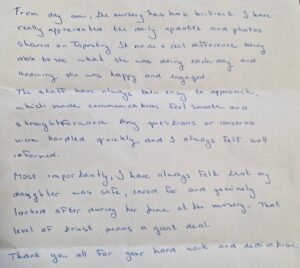 From day one, the nursery has been brilliant. I have
really appreciated the daily updates and photos
shared on Tapestry. It made a real difference being
able to see what she was doing each day and
knowing she was happy and engaged.
The staff have always been easy to approach,
which made communication feel smooth and
straightforward. Any questions or concerns
were handled quickly, and I always felt well
informed.
Most importantly, I have always felt that my
daughter was safe, cared for and genuinely
looked after during her time at the nursery. That
level of trust means a great deal.
Thank you all for your hard work and dedication.